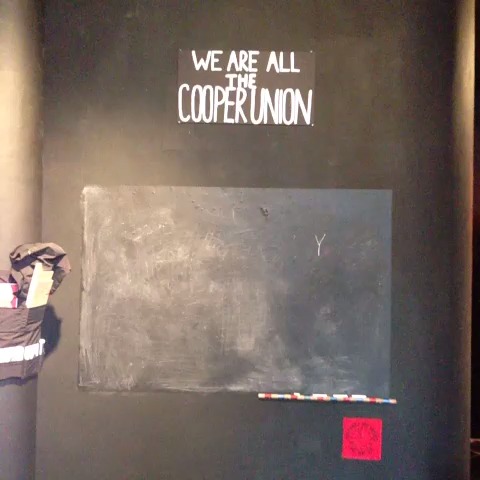 WE ARE ALL
THE
COOPER UNION
Y